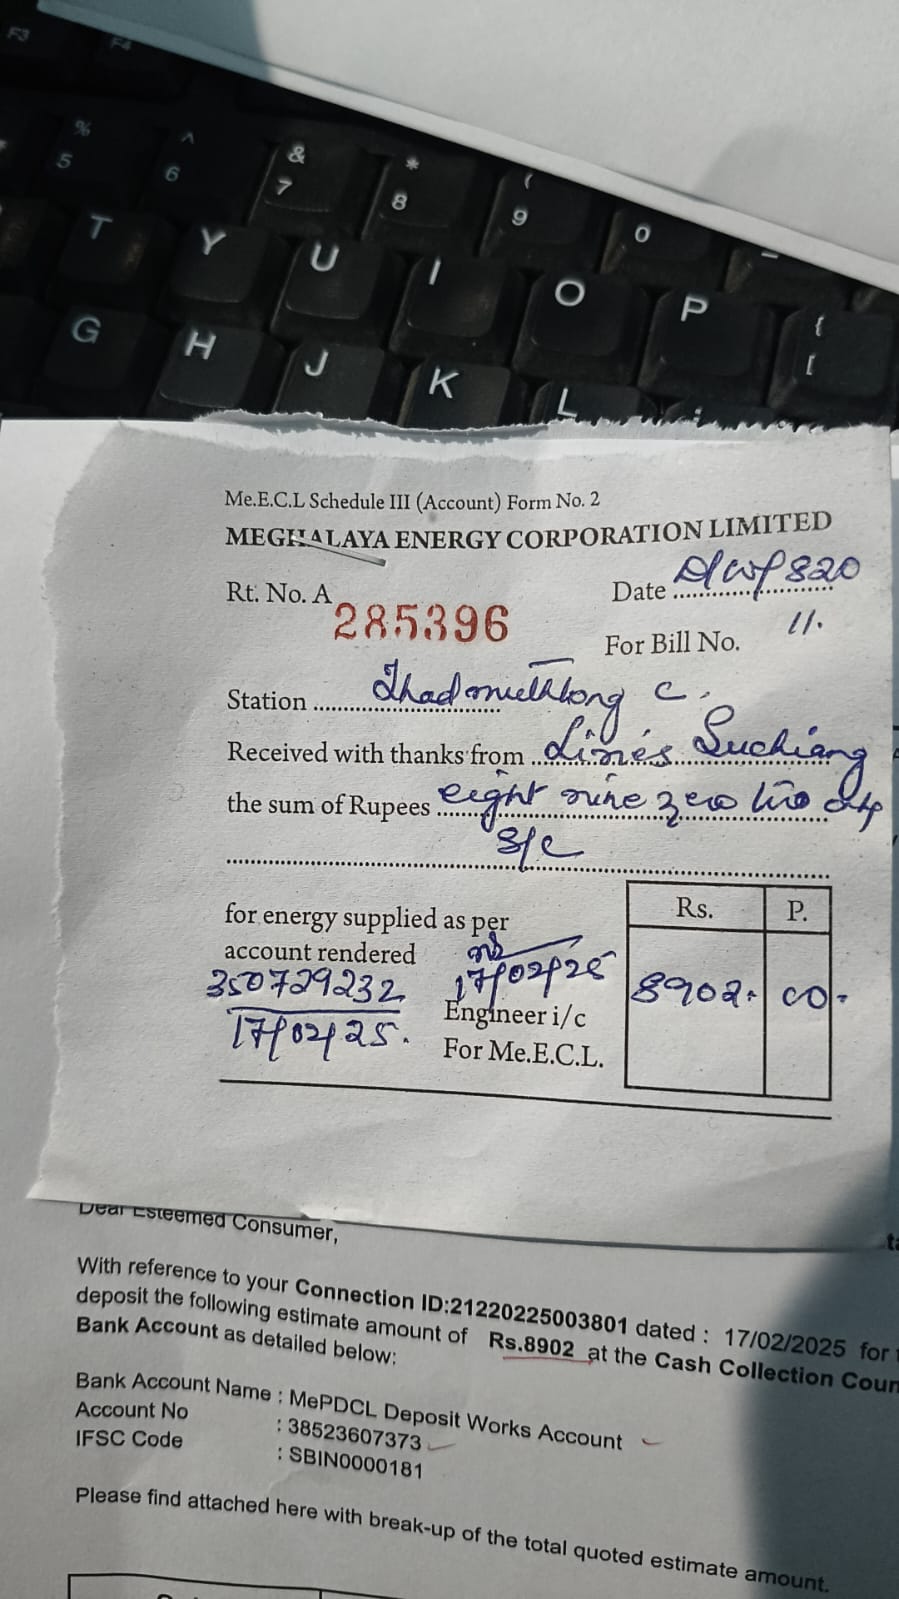 F3
F4
% 5
^ 6
& 7
* 8
( 9
0
T
Y
U
I
O
P
{ [
G
H
J
K
L
Me.E.C.L Schedule III (Account) Form No. 2
MEGHALAYA ENERGY CORPORATION LIMITED
Rt. No. A 285396
Date 820
For Bill No. 11.
Station C.
Received with thanks from Lines Suchiang
the sum of Rupees eight nine zero two
S/C
for energy supplied as per
account rendered
350729232
17/02/25.
17/02/25
Engineer i/c
For Me.E.C.L.
Rs. P.
8902. 00
Dear Esteemed Consumer,
With reference to your Connection ID:21220225003801 dated : 17/02/2025 for
deposit the following estimate amount of Rs.8902 at the Cash Collection Coun
Bank Account as detailed below:
Bank Account Name : MePDCL Deposit Works Account
Account No : 38523607373
IFSC Code : SBIN0000181
Please find attached here with break-up of the total quoted estimate amount.